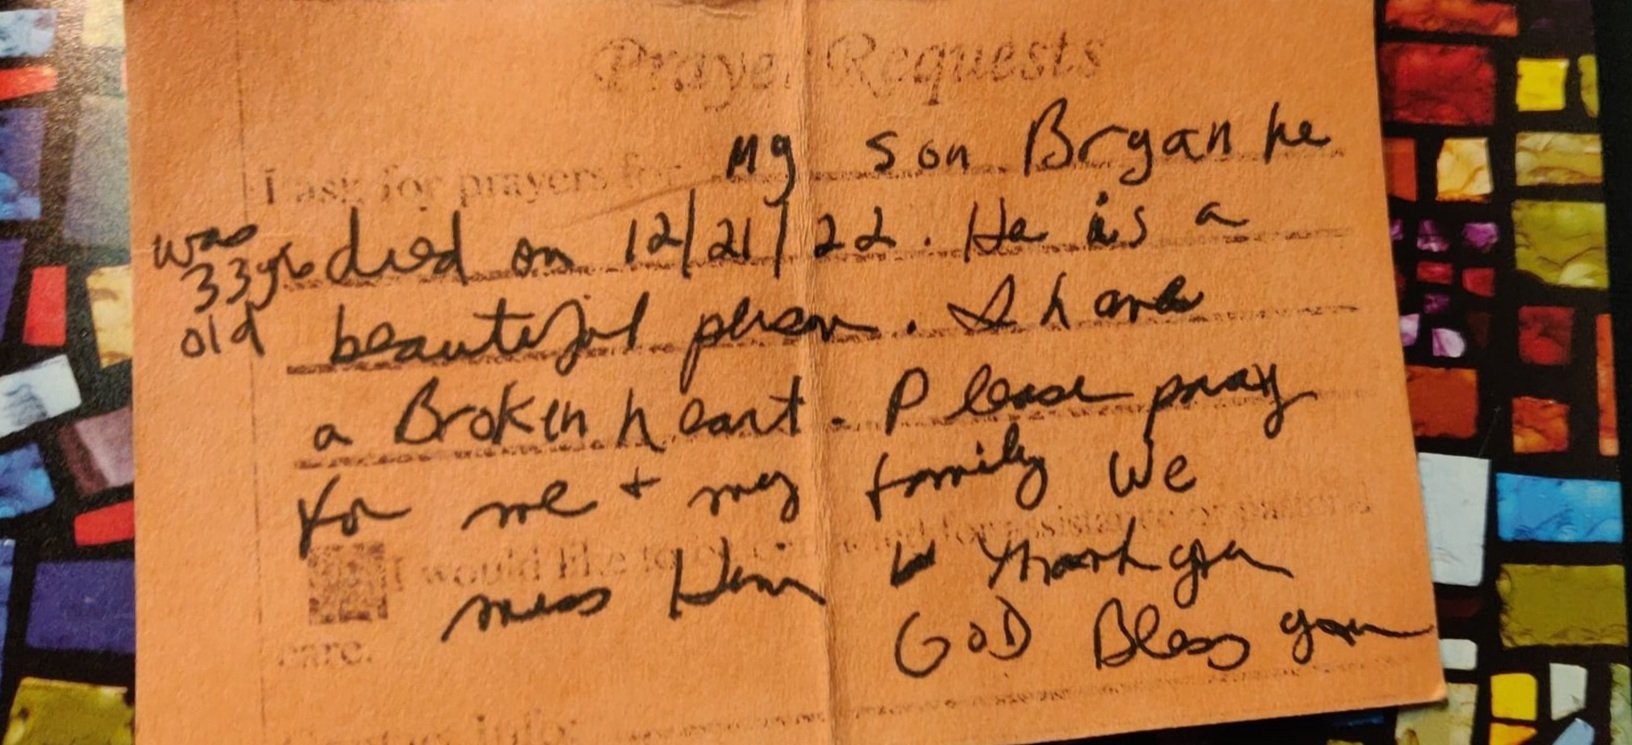 Prayer Requests
I ask for prayers for My son Bryan he
was 33yrs old
died on 12/21/22. He is a
beautiful person. I have
a Broken heart. Please pray
for me + my family We
I would like to be for assistance or pastoral
miss Him Thank you
care.
GOD Bless you
Contact Info: